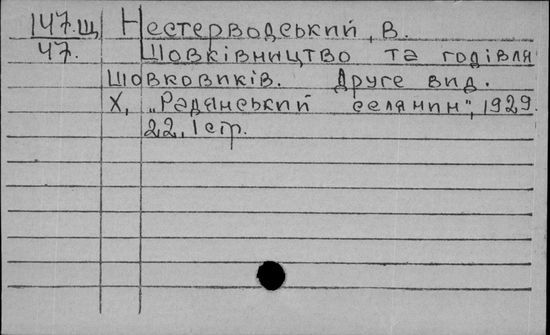 147.щ Нестерводський, В.
47. Шовківництво та годівля
шовковиків. Друге вид.
Х, „Радянський селянин", 1929.
22, 1 стр.